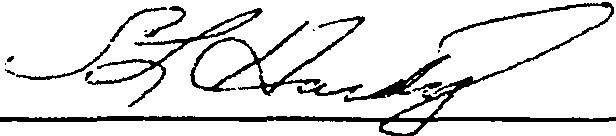 SL Hardy